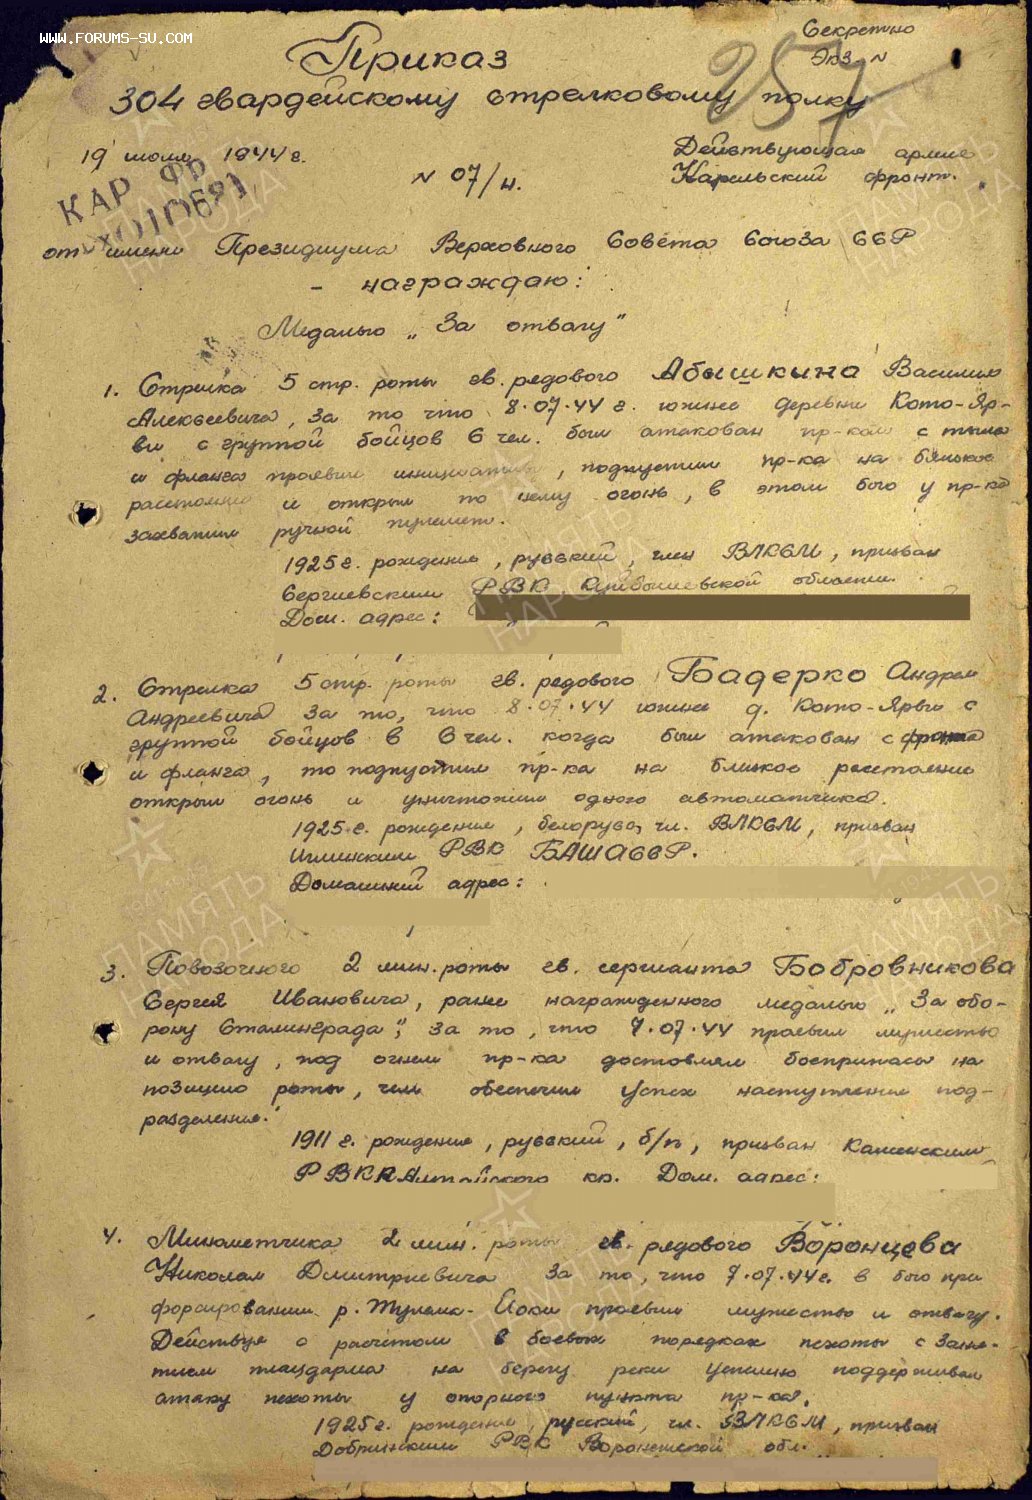 www.forums-su.com
Секретно
Экз. N 1
257
Приказ
304 гвардейскому стрелковому полку
19 июля 1944 г.
N 07/н.
Действующая армия
Карельский фронт.
КАР ФР
010691
от имени Президиума Верховного Совета Союза ССР
- награждаю:
Медалью „За отвагу"
1. Стрелка 5 стр. роты гв. рядового Абышкина Василия
Алексеевича, за то что 8.07.44 г. южнее деревни Кото-Яр-
ви с группой бойцов 6 чел. был атакован пр-ком с тыла
и фланга проявил инициативу, подпустил пр-ка на близкое
расстояние и открыл по нему огонь, в этом бою у пр-ка
захватили ручной пулемет.
1925 г. рождения, русский, член ВЛКСМ, призван
Сергиевским РВК Куйбышевской области.
Дом. адрес:
2. Стрелка 5 стр. роты гв. рядового Бадерко Андрея
Андреевича за то, что 8.07.44 южнее д. Кото-Ярви с
группой бойцов в 6 чел. когда был атакован с фронта
и фланга, то подпустил пр-ка на близкое расстояние
открыл огонь и уничтожил одного автоматчика.
1925 г. рождения, белорус, чл. ВЛКСМ, призван
Иглинским РВК БАШАССР.
Домашний адрес:
3. Повозочного 2 мин. роты гв. сержанта Бобровникова
Сергея Ивановича, ранее награжденного медалью „За обо-
рону Сталинграда", за то, что 7.07.44 проявил мужество
и отвагу, под огнем пр-ка доставлял боеприпасы на
позицию роты, чем обеспечил успех наступления под-
разделения.
1911 г. рождения, русский, б/п, призван Каменским
РВК Алтайского кр. Дом. адрес:
4. Минометчика 2 мин. роты гв. рядового Воронцова
Николая Дмитриевича за то, что 7.07.44 г. в бою при
форсировании р. Тулема-Иоки проявил мужество и отвагу.
Действуя с расчетом в боевых порядках пехоты с заня-
тием плацдарма на берегу реки успешно поддерживал
атаку пехоты у опорного пункта пр-ка.
1925 г. рождения, русский, чл. ВЛКСМ, призван
Добринским РВК Воронежской обл.
ПАМЯТЬ
НАРОДА